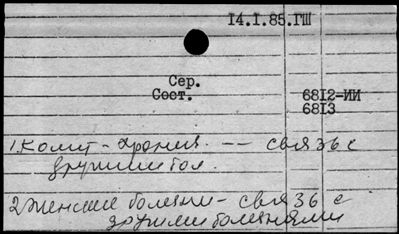 14.I.85.ГШ
Сер.
Сост. 6812-ИИ
6813
1. Колит - хрония. -- связь с
другими бол.
2 Женские болезни - связь с
другими болезнями